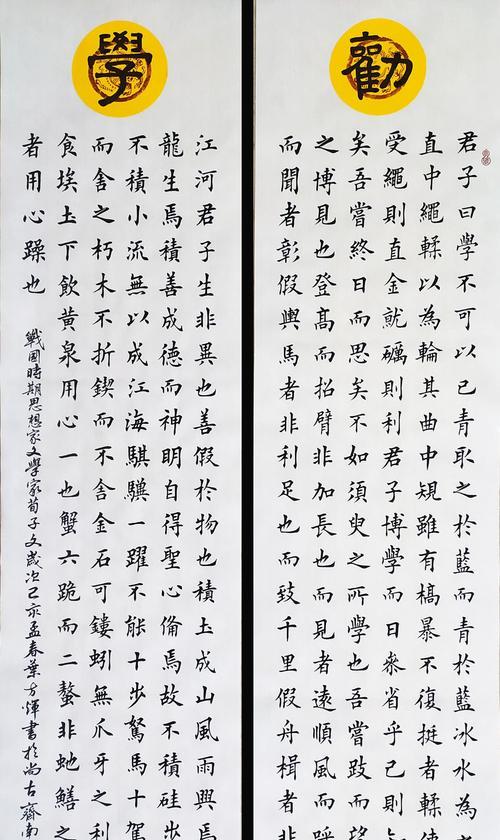 勸
君子曰學不可以已青取之於藍而青於藍冰水為
直中繩輮以為輪其曲中規雖有槁暴不復挺者輮
受繩則直金就礪則利君子博學而日參省乎己則
矣吾嘗終日而思矣不如須臾之所學也吾嘗跂而望
之博見也登高而招臂非加長也而見者遠順風而呼
而聞者彰假輿馬者非利足也而致千里假舟楫者非
學
江河君子生非異也善假於物也積土成山風雨興焉
龍生焉積善成德而神明自得聖心備焉故不積硅步
不積小流無以成江海騏驥一躍不能十步駑馬十駕
而舍之朽木不折鍥而不舍金石可鏤蚓無爪牙之利
食埃土下飲黄泉用心一也蟹六跪而二螯非虵鱔之
者用心躁也
戰國時期思想家文學家荀子文歲次己亥孟春葉方煇書於尚古齋南